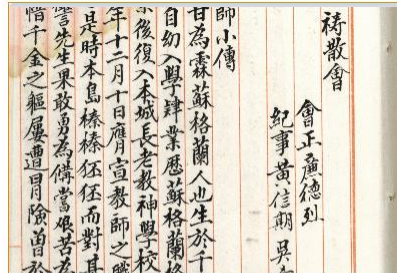 祷散會
會正廉德烈
紀事黃信期 吳
師小傳
甘為霖蘇格蘭人也生於千
自幼入學肄業歷蘇格蘭格
後復入本城長老教神學校
年十二月十日膺宣教師之職
是時本島榛榛狉狉而對其
先生果敢勇為備嘗艱苦為
惜千金之軀屢遭冒險曾於